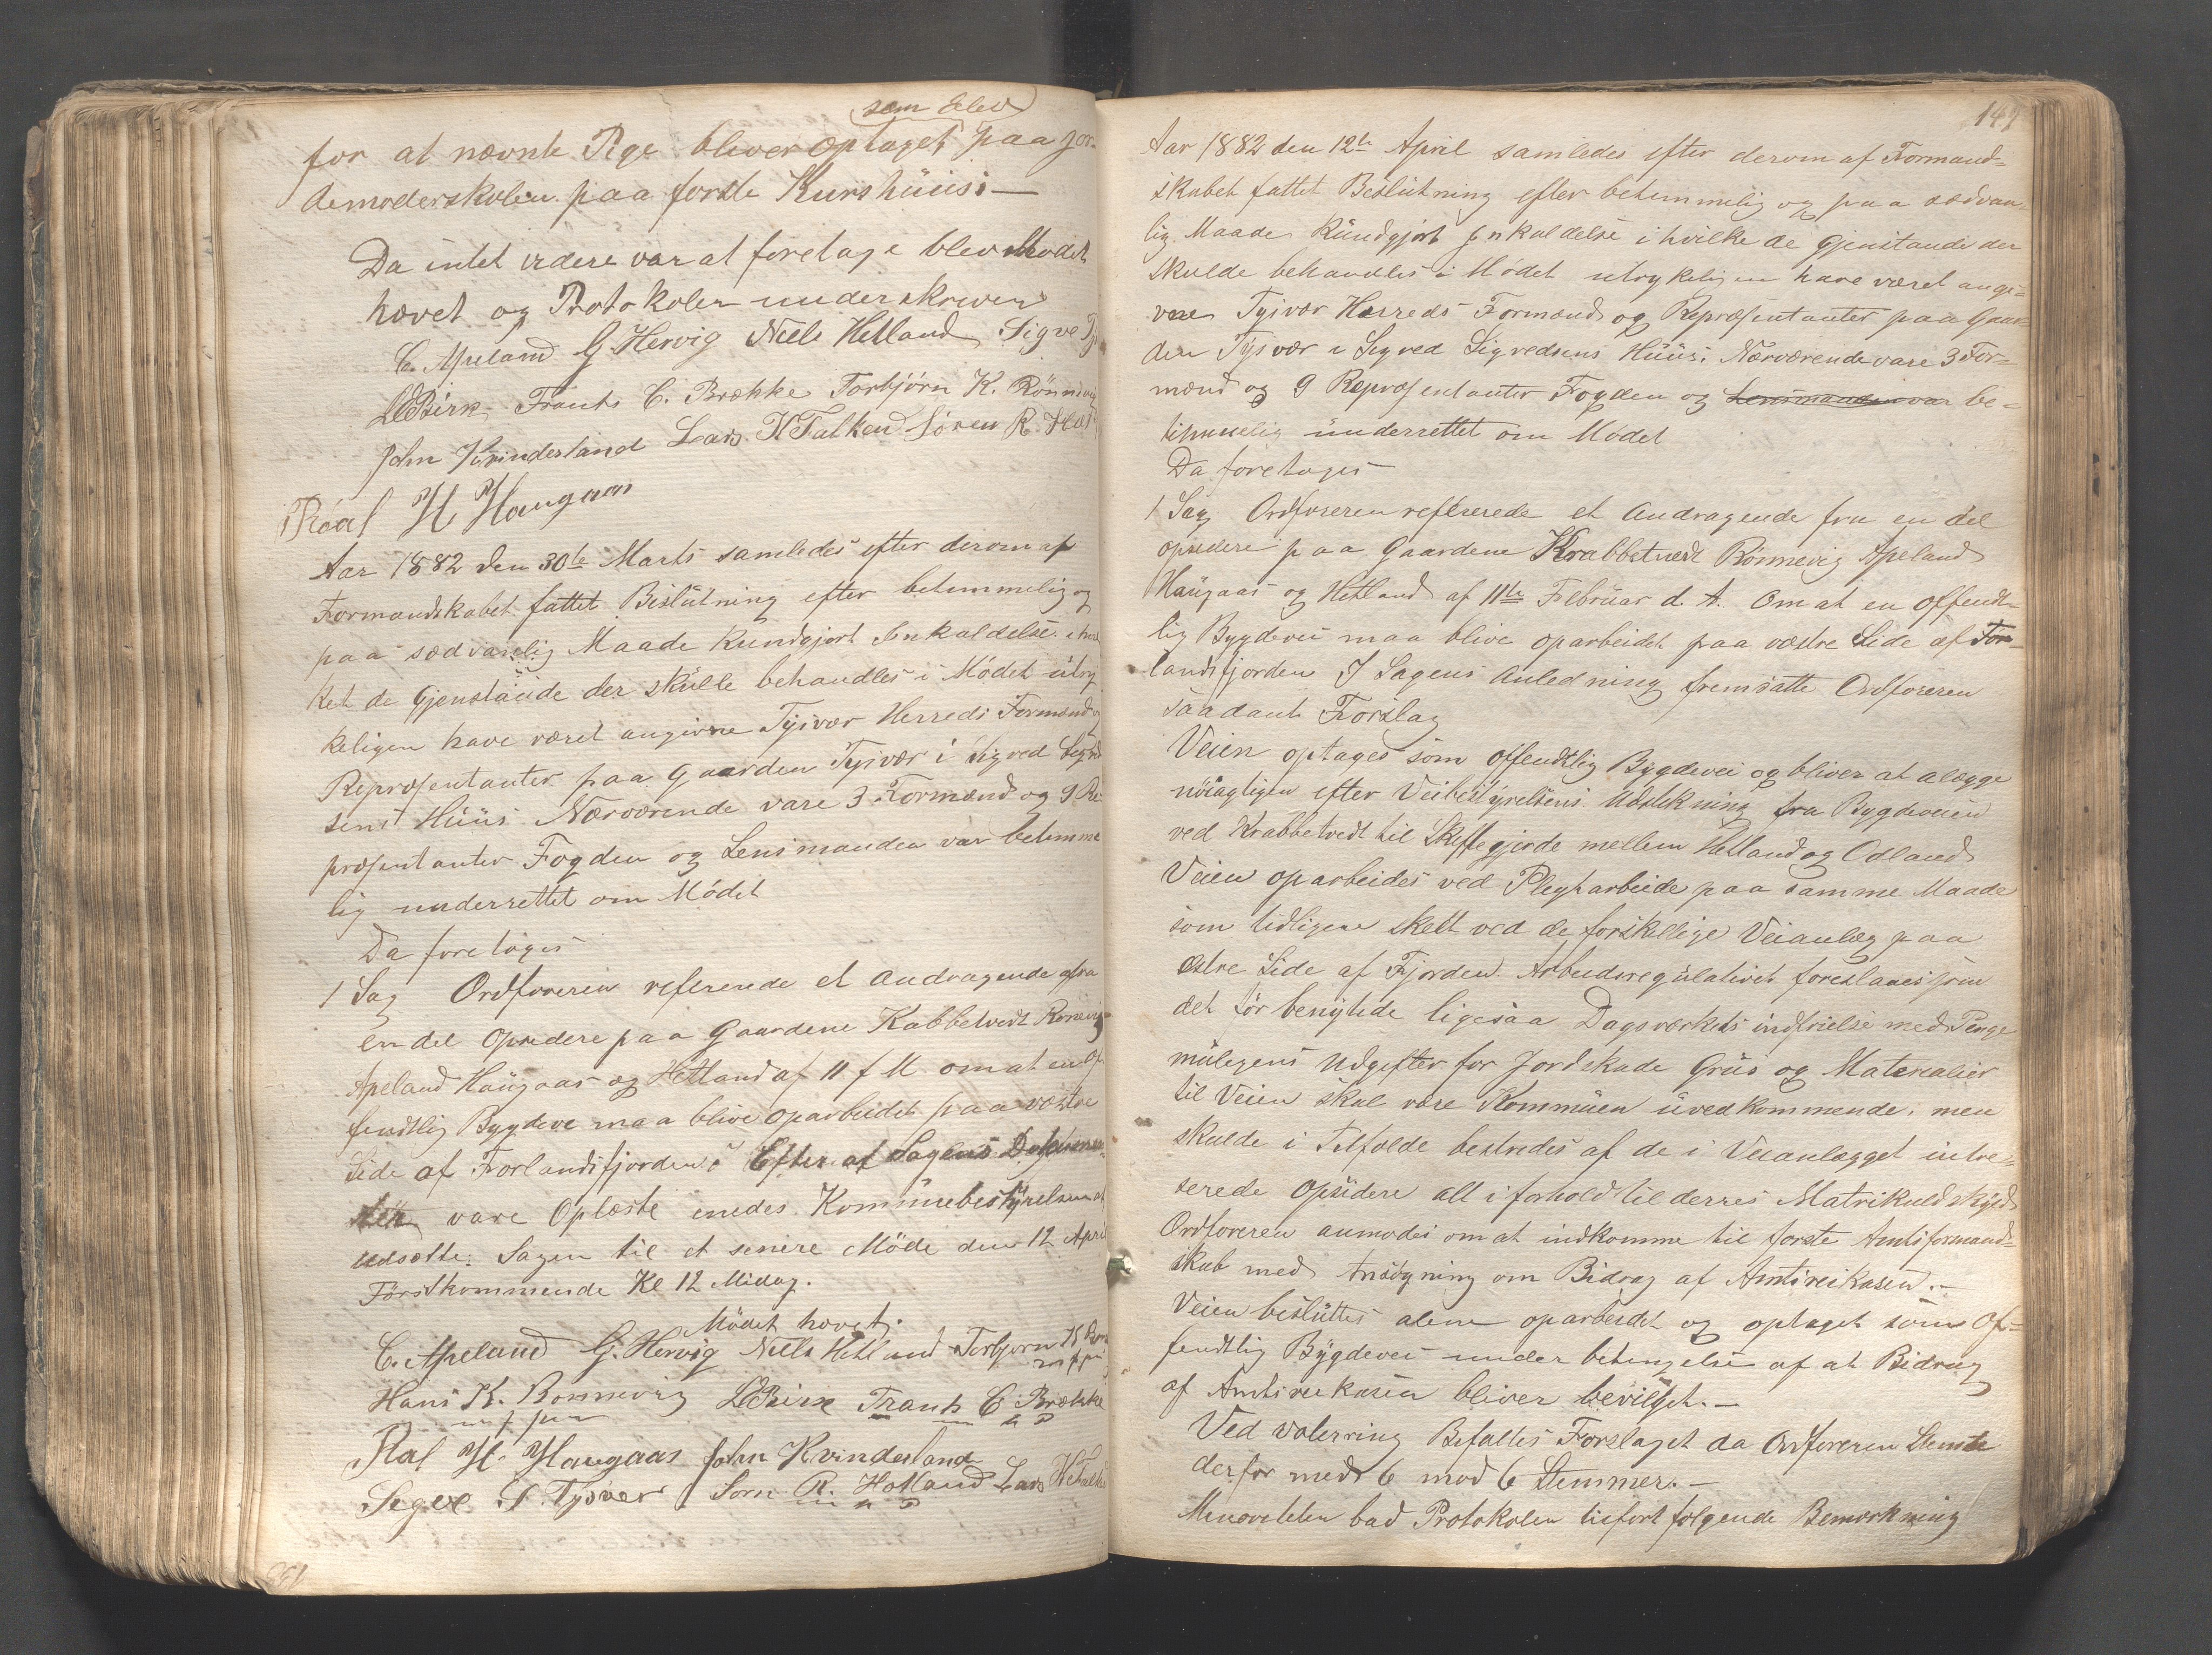 som Elev
for at nævnte Pige bliver optaget paa Jor-
demoderskolen paa første Kurshüüs.—
Da intet videre var at foretage blev Mødet
hævet og Protokolen underskreven
C. Apeland G. Hervig Niels Hetland Sigve
LBirk Frants C. Brække Torbjörn K. Rönnevig
John Kvinderland Lars H Falkeid Sören R
Roal H Haugaas
Aar 1882 den 30te Marts samledes efter derom af
Formandskabet fattet Beslütning efter betimmelig og
paa sædvanlig Maade Kundgjort Inkaldelse i hvil
ket de Gjenstande der skülle behandles i Mödet ütry
keligen have været angivne Tysvær Herreds Formænd og
Repræsentanter paa Gaarden Tysvær i Sigved Sigved
sens Hüüs. Nærværende vare 3 Formænd og 9 Re
præsentanter Fogden og Lensmanden var betimme
lig underrettet om Mödet
Da foretoges
1 Sag Ordføreren refererede et Andragende fra
en del Opsidere paa Gaardene Kabbetvedt Rönevig
Apeland Haügaas og Hetland af 11 f M om at en Of
fendtlig Bygdeve maa blive oparbeidet paa vestre
Side af Førlandsfjorden. Efter at Sagens Dokumen
ter vare Oplæste enedes Kommünebestyrelsen at
udsætte Sagen til et senere Møde den 12 April
Förstkommende Kl 12 Midag.
Mödet hævet.
C. Apeland G. Hervig Niels Hetland Torbjørn K Røn
Hans K. Rönnevig LBirk Frants C Brække
m f pen
Roal H. Haugaas John Kvinderland
Sigve S. Tysver Sørn R. Hetland Lars H Falkeid
149
Aar 1882 den 12te April samledes efter derom af Formand-
skabet fattet Beslütning efter betimmelig og paa sædvan-
lig Maade Kündgjort Inkaldelse i hvilke de Gjenstande der
skulde behandles i Mödet utrykeligen have været angi-
vne Tysvær Herreds Formænd og Repræsentanter paa Gaar
den Tysvær i Sigved Sigvedsens Hüüs. Nærværende vare 3 For-
mænd og 9 Repræsentanter Fogden og Lensmanden var be-
timmelig ünderrettet om Mödet
Da foretoges—
1 Sag Ordføreren refererede et Andragende fra en del
opsidere paa Gaardene Krabbetvedt Rönnevig Apeland
Haügaas og Hetland af 11te Februar d. A. Om at en offendt-
lig Bygdevei maa blive oparbeidet paa vestre Side af För-
landsfjorden I Sagens Anledning fremsatte Ordføreren
saadant Forslag
Veien optages som offendtlig Bygdevei og bliver at alægge
nöiagtigen efter Veibestyrelsens Udstikning fra Bygdeveien
ved Krabbetvedt til Skiftegjerde mellem Hetland og Odland
Veien oparbeides ved Pligtarbeide paa samme Maade
som tidligere skett ved de forskellige Veianlæg paa
østre Side af Fjorden. Arbeidsregulativet foreslaaes som
det för benyttede ligesaa Dagsværkets indfrielse med Penge
müligens Udgifter for Jordskade Grüs og Materialier
til Veien skal være Kommünen üvedkommende, men
skulde i Tilfælde bestredes af de i Veianlægget intre-
serede Opsidere alt i forhold til derres Matrikulskyld
Ordføreren anmodes om at indkomme til første Amtsformand-
skab med Ansögning om Bidrag af Amtsveikasen.—
Veien beslüttes alene oparbeidet og optaget som Of-
fendtlig Bygdevei under betingelse af at Bidrag
af Amtsveikasen bliver bevilget.—
Ved voterring Befaltes Forslaget da Ordføreren Stemte
derfor med 6 mod 6 Stemmer.—
Minoriteten bad Protokolen tilført følgende Bemærkning